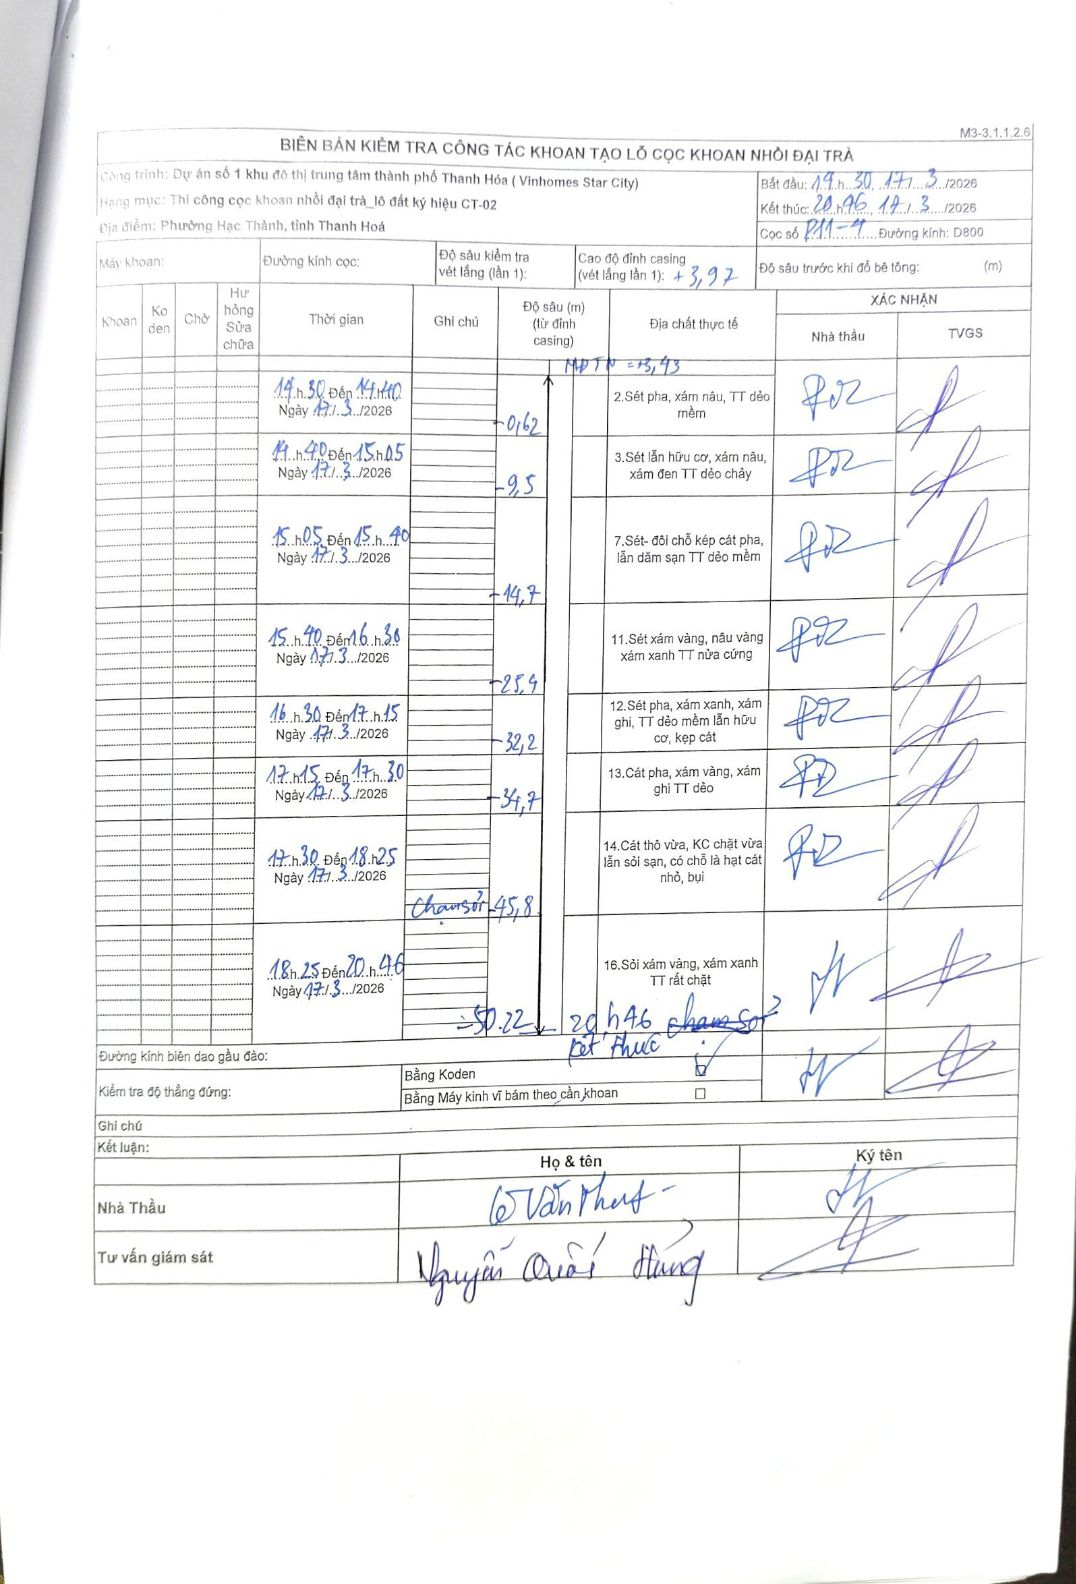 M3-3.1.1.2.6
BIÊN BẢN KIỂM TRA CÔNG TÁC KHOAN TẠO LỖ CỌC KHOAN NHỒI ĐẠI TRÀ
Công trình: Dự án số 1 khu đô thị trung tâm thành phố Thanh Hóa ( Vinhomes Star City)
Hạng mục: Thi công cọc khoan nhồi đại trà_lô đất ký hiệu CT-02
Địa điểm: Phường Hạc Thành, tỉnh Thanh Hoá
Bắt đầu: 14 h 30, 17/ 3 /2026
Kết thúc: 20 h 46, 17 / 3 /2026
Cọc số P11-4 Đường kính: D800
Máy khoan:
Đường kính cọc:
Độ sâu kiểm tra
vét lắng (lần 1):
Cao độ đỉnh casing
(vét lắng lần 1): +3,97
Độ sâu trước khi đổ bê tông: (m)
Khoan
Ko
den
Chờ
Hư
hỏng
Sửa
chữa
Thời gian
Ghi chú
Độ sâu (m)
(từ đỉnh
casing)
Địa chất thực tế
XÁC NHẬN
Nhà thầu
TVGS
MĐTN = +3,43
14 h 30 Đến 14 h 40
Ngày 17/ 3 /2026
-0,62
2.Sét pha, xám nâu, TT dẻo
mềm
14 h 40 Đến 15 h 05
Ngày 17/ 3 /2026
-9,5
3.Sét lẫn hữu cơ, xám nâu,
xám đen TT dẻo chảy
15 h 05 Đến 15 h 40
Ngày 17/ 3 /2026
-14,7
7.Sét- đôi chỗ kép cát pha,
lẫn dăm sạn TT dẻo mềm
15 h 40 Đến 16 h 30
Ngày 17/ 3 /2026
-25,4
11.Sét xám vàng, nâu vàng
xám xanh TT nửa cứng
16 h 30 Đến 17 h 15
Ngày 17/ 3 /2026
-32,2
12.Sét pha, xám xanh, xám
ghi, TT dẻo mềm lẫn hữu
cơ, kẹp cát
17 h 15 Đến 17 h 30
Ngày 17/ 3 /2026
-34,7
13.Cát pha, xám vàng, xám
ghi TT dẻo
17 h 30 Đến 18 h 25
Ngày 17/ 3 /2026
Chạm sỏi
-45,8
14.Cát thô vừa, KC chặt vừa
lẫn sỏi sạn, có chỗ là hạt cát
nhỏ, bụi
18 h 25 Đến 20 h 46
Ngày 17/ 3 /2026
16.Sỏi xám vàng, xám xanh
TT rất chặt
-50.22
20 h 46 chạm sỏi
kết thúc
Đường kính biên dao gầu đào:
Kiểm tra độ thẳng đứng:
Bằng Koden
Bằng Máy kinh vĩ bám theo cần khoan
Ghi chú
Kết luận:
Họ & tên
Ký tên
Nhà Thầu
Lê Văn
Tư vấn giám sát
Nguyễn Quốc Hùng